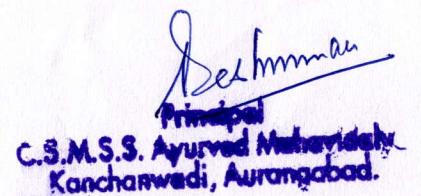 Principal
C.S.M.S.S. Ayurved Mahavidaly
Kanchanwadi, Aurangabad.